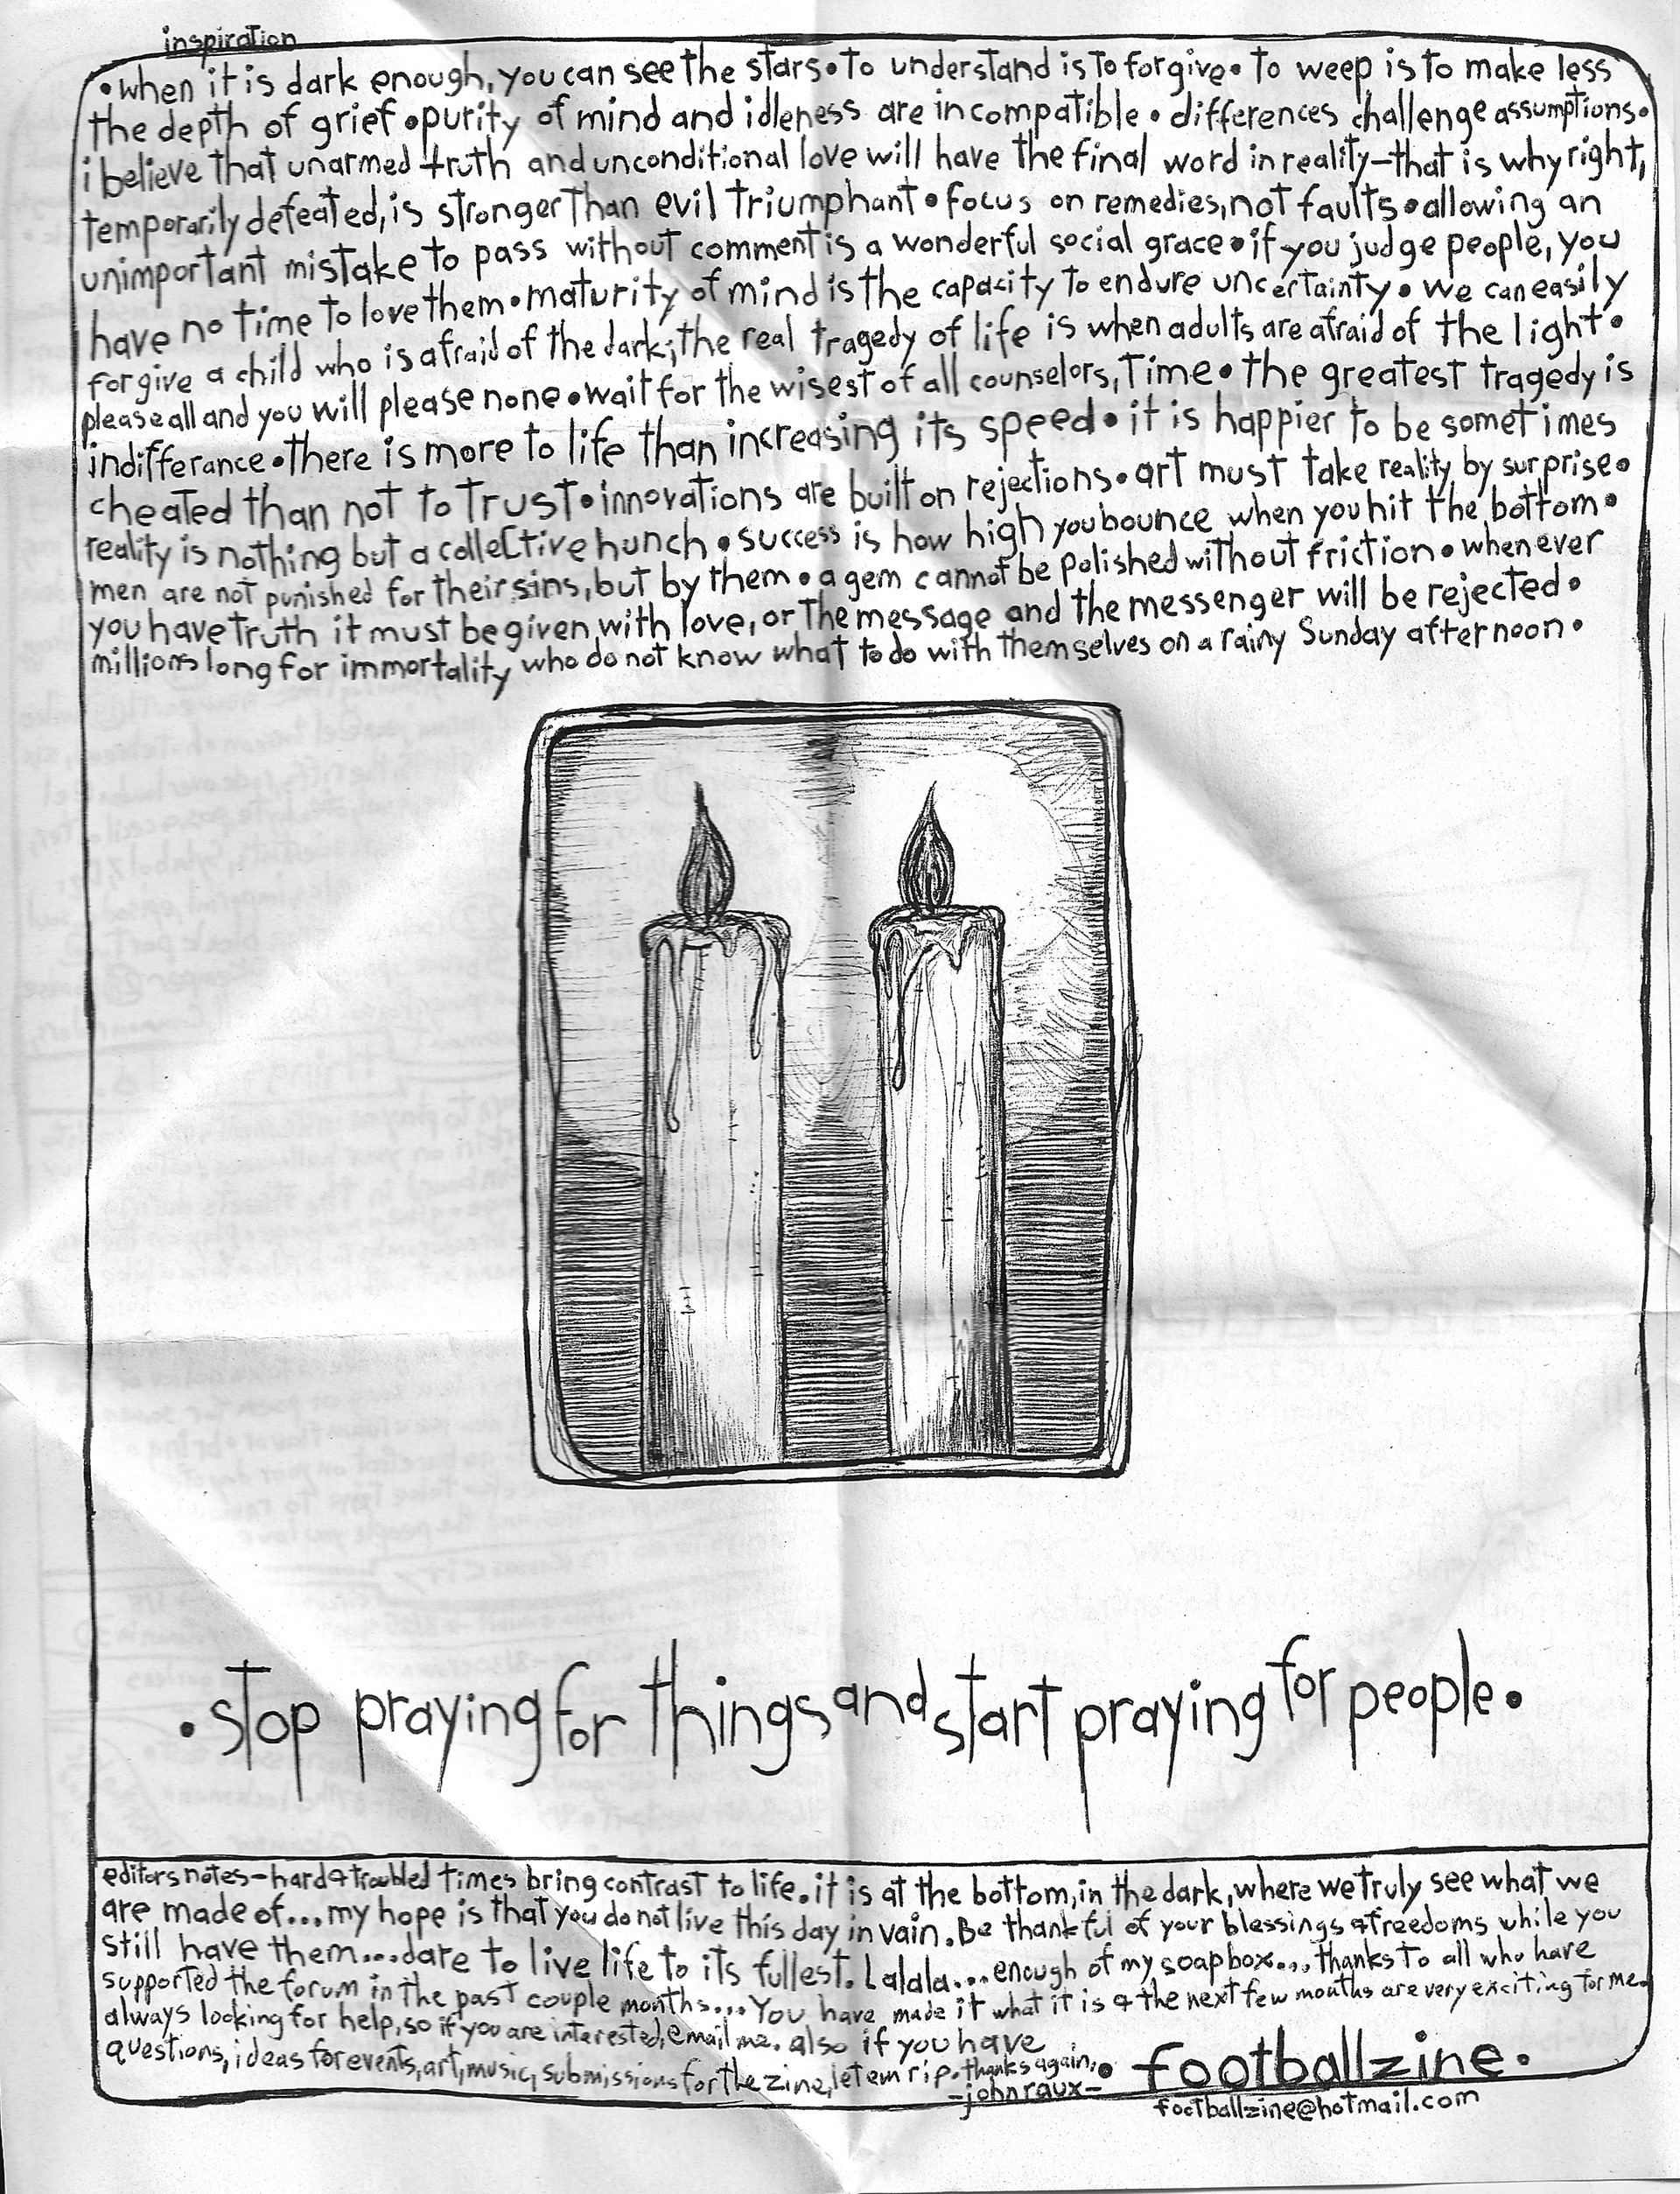 inspiration
• when it is dark enough, you can see the stars • to understand is to forgive • to weep is to make less
the depth of grief • purity of mind and idleness are incompatible • differences challenge assumptions •
i believe that unarmed truth and unconditional love will have the final word in reality – that is why right,
temporarily defeated, is stronger than evil triumphant • focus on remedies, not faults • allowing an
unimportant mistake to pass without comment is a wonderful social grace • if you judge people, you
have no time to love them • maturity of mind is the capacity to endure uncertainty • we can easily
forgive a child who is afraid of the dark; the real tragedy of life is when adults are afraid of the light •
please all and you will please none • wait for the wisest of all counselors, Time • the greatest tragedy is
indifferance • there is more to life than increasing its speed • it is happier to be sometimes
cheated than not to trust • innovations are built on rejections • art must take reality by surprise •
reality is nothing but a collective hunch • success is how high you bounce when you hit the bottom •
men are not punished for their sins, but by them • a gem cannot be polished without friction • whenever
you have truth it must be given with love, or the message and the messenger will be rejected •
millions long for immortality who do not know what to do with themselves on a rainy Sunday afternoon •
• stop praying for things and start praying for people •
editors notes – hard & troubled times bring contrast to life. it is at the bottom, in the dark, where we truly see what we
are made of... my hope is that you do not live this day in vain. Be thankful of your blessings & freedoms while you
still have them... dare to live life to its fullest. Lalala... enough of my soapbox... thanks to all who have
supported the forum in the past couple months... You have made it what it is & the next few months are very exciting for me.
always looking for help, so if you are interested, email me. also if you have
questions, ideas for events, art, music, submissions for the zine, let em rip. thanks again, •
–john raux–
footballzine.
footballzine@hotmail.com